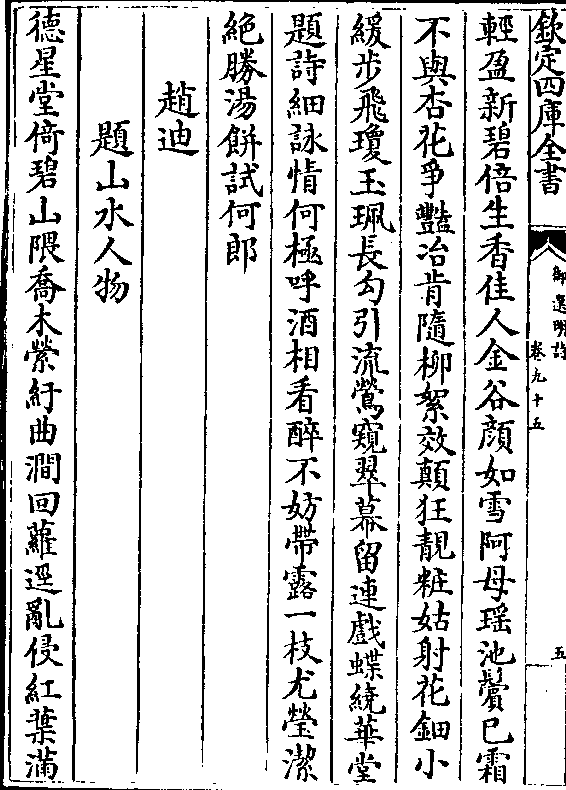 欽定四庫全書
御選明詩
卷九十五
五
輕盈新碧倍生香佳人金谷顔如雪阿母瑶池鬢已霜
不與杏花爭豔冶肯隨柳絮效顛狂靚粧姑射花鈿小
緩步飛瓊玉珮長勾引流鶯窺翠幕留連戲蝶繞華堂
題詩細詠情何極呼酒相看醉不妨帶露一枝尤瑩潔
絶勝湯餅試何郎
趙迪
題山水人物
德星堂倚碧山隈喬木縈紆曲澗回蘿逕亂侵紅葉滿